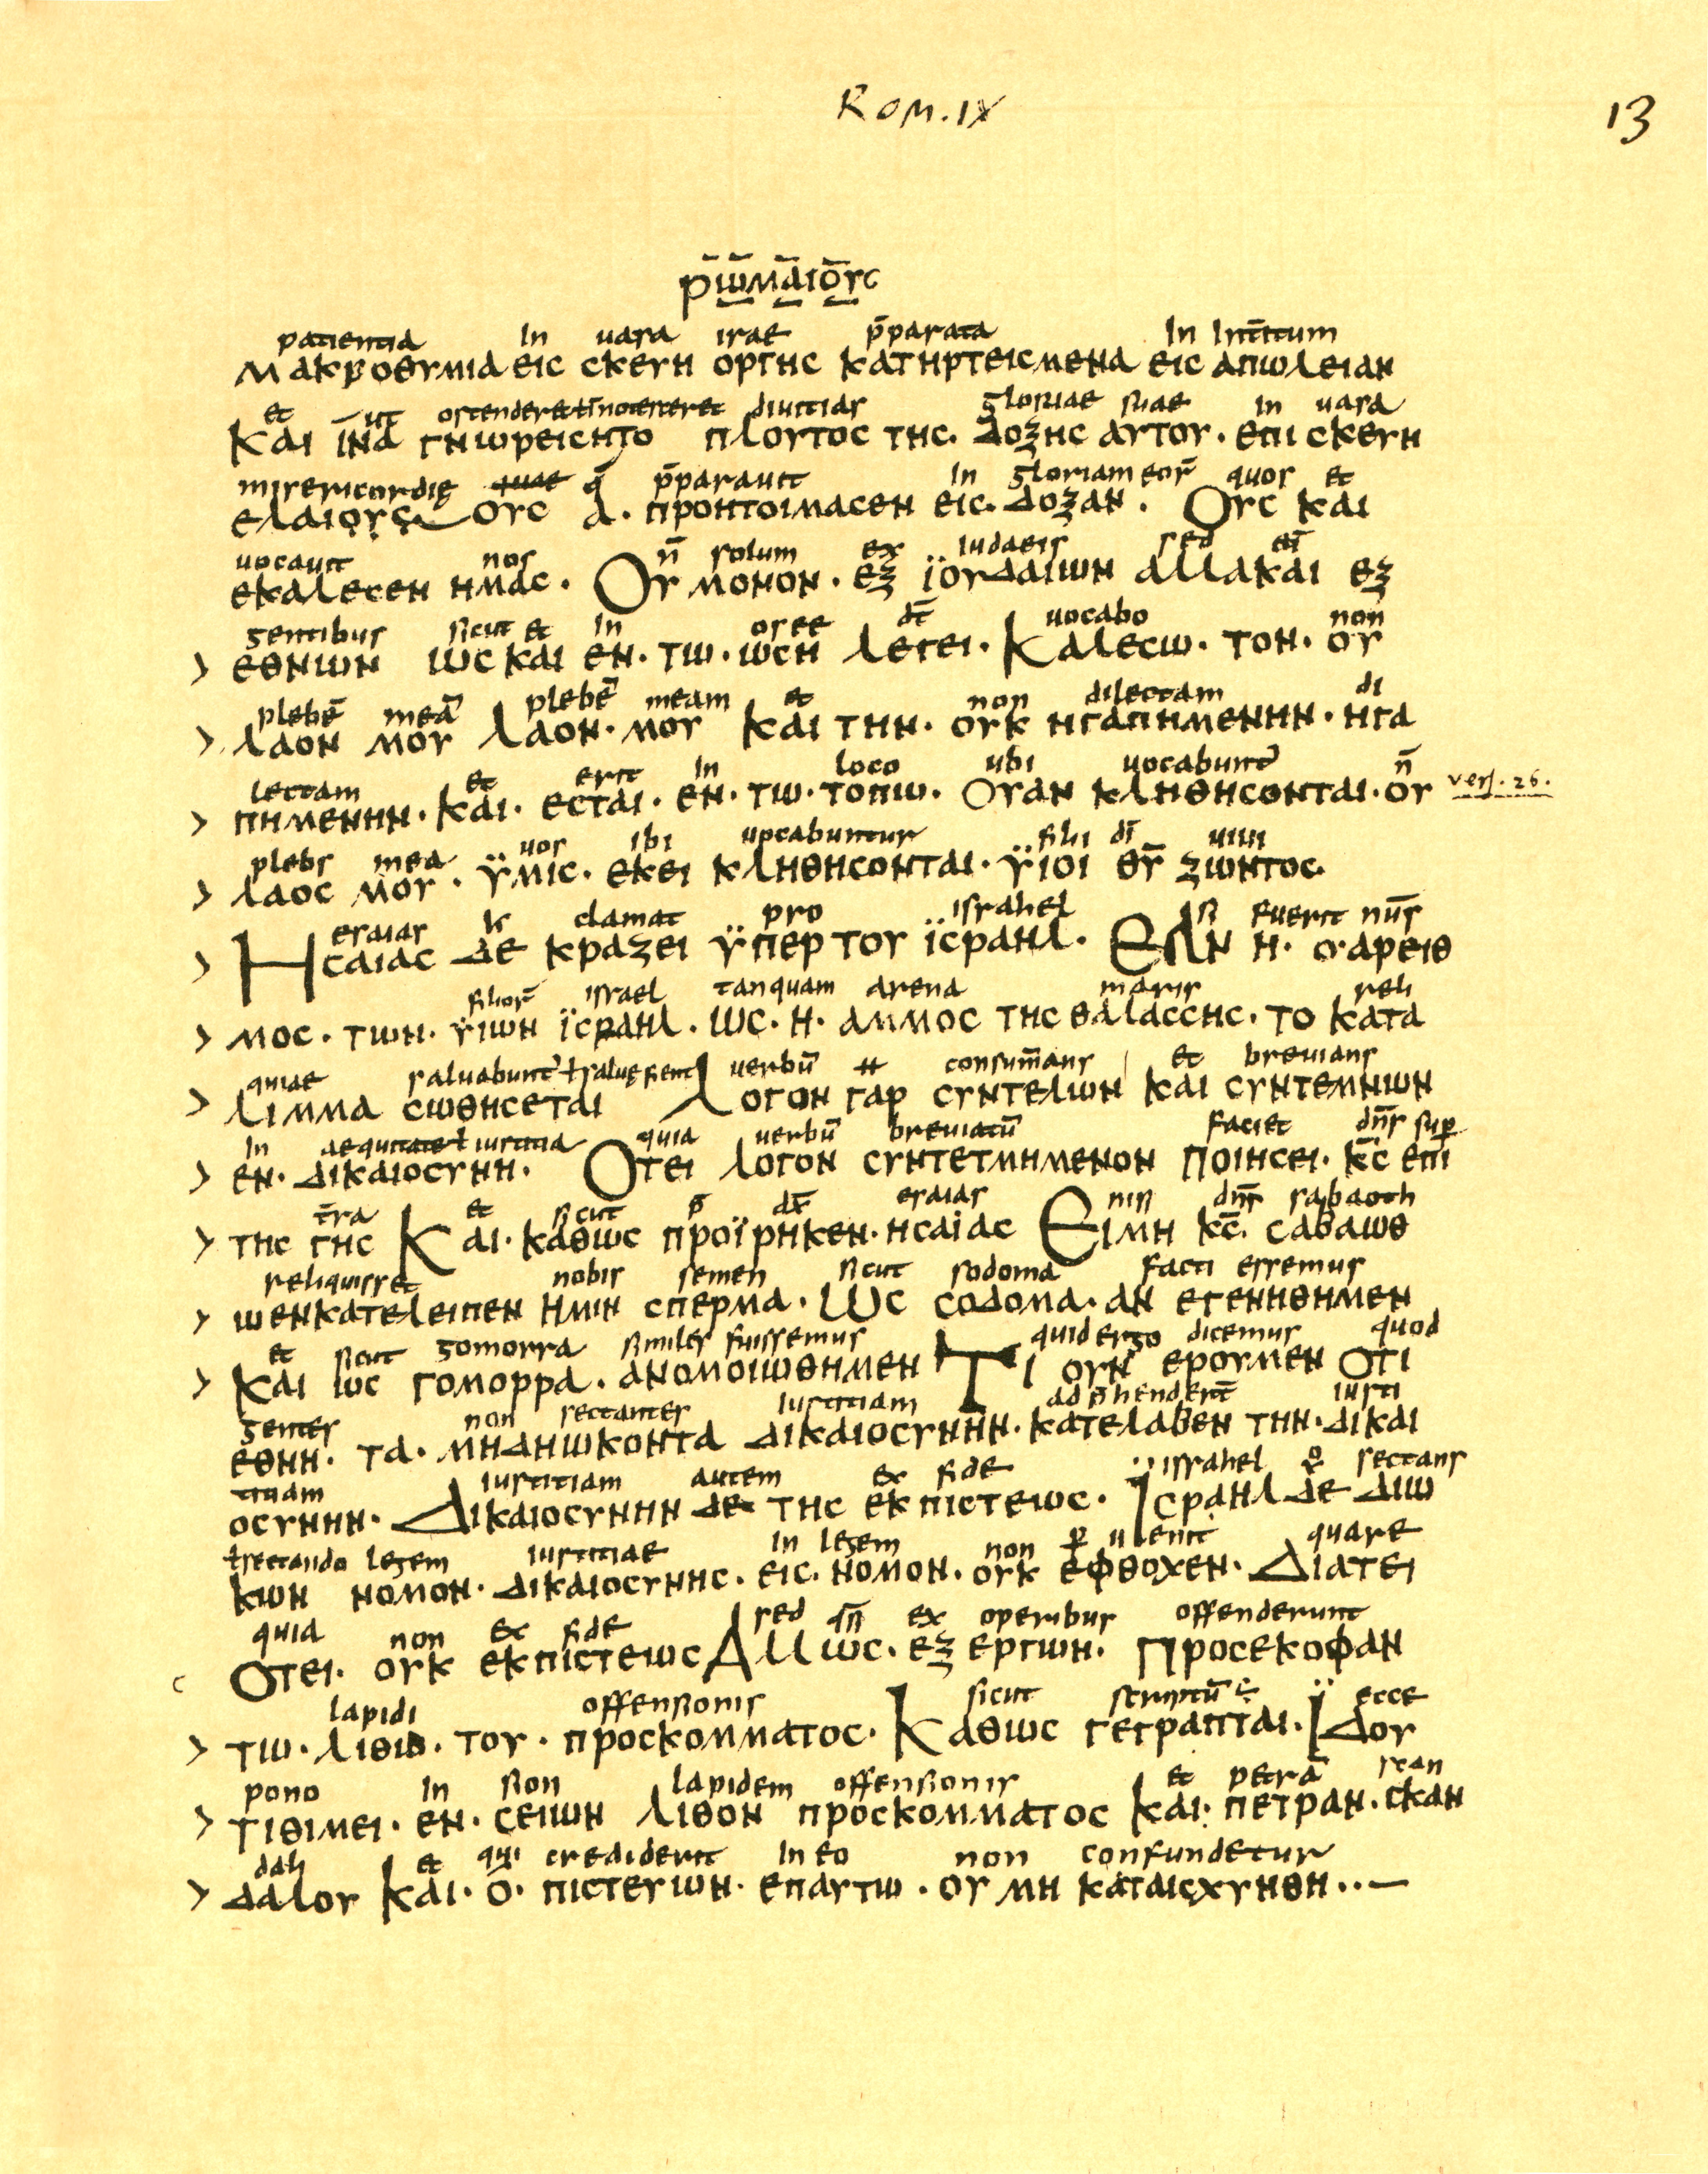 Rom. IX
13
ρωμαιους
patientia In uasa irae p̄parata In Int̄itum
μακροθυμια εις σκευη οργης κατηρτεισμενα εις απωλειαν
et ut ostenderet ł notesceret diuitias gloriae suae In uasa
Και ῑνα γνωρεισητο πλουτος της· δοξης αυτου· επι σκευη
misericordię quae q̄ p̄parauit In gloriam eor̄ quos et
ελαιους ους α· προητοιμασεν εις· δοξαν· Ους και
uocauit nos n̄ solum ex Iudaeis sed et̄
εκαλεσεν ημας· Ου μονον· εξ ϊουδαιων αλλακαι εξ
gentibus sicut et In osee dc̄ uocabo non
> εθνιων ως και εν· τω· ωση λεγει· Καλεσω· τον· ου
plebē meā plebē meam et non dilectam di
> λαον μου λαον· μου και την· ουκ ηγαπημενην· ηγα
lectam et erit In loco ubi uocabunt̄ n̄
> πημενην· και· εσται· εν· τω· τοπω· Ουαν κληθησονται· ου vers. 26.
plebs mea uos ibi uocabuntur filii dī uiui
> λαος μου· ϋμις· εκει κληθησονται· ϋιοι θ̄ῡ ζωντος·
esaias clamat pro israhel si fuerit nūs
> Ησαιας δε κραζει ϋπερ του ϊσραηλ· Εαν η· ο αρειθ
filior̄ israel tanquam arena maris reli
> μος· των· ϋιων ϊσραηλ· ως· η· αμμος της θαλασσης· το κατα
quiae saluabunt̄ ł saluę fient uerbū consum̄ans et breuians
> λιμμα σωθησεται Λογον γαρ συντελιων και συντεμνιων
In aequitate ł iustitia quia uerbū breuiatū faciet dn̄s sup̄
> εν· δικαιοσυνη· Οτει λογον συντετμημενον ποιησει· κ̄ς̄ επι
t̄ra et sicut dx̄ esaias nisi dn̄s sabaoth
> της γης Και· καθως προϊρηκεν· ησαϊας Ειμη κ̄ς̄· σαβαωθ
reliquisset nobis semen sicut sodoma facti essemus
> ωενκατελειπεν ημιν σπερμα· ως σοδομα· αν εγενηθημεν
et sicut gomorra similes fuissemus quid ergo dicemus quod
> και ως γομορρα· ανομοιωθημεν Τι ουν ερουμεν οτι
gentes non sectantes Iustitiam adp̄hendert̄ iusti
εθνη· τα· μηδηωκοντα δικαιοσυνην· κατελαβεν την· δικαι
tiam iustitiam autem ex fide israhel sectans
οσυνην· Δικαιοσυνην δε της εκ πιστεως· Ϊσραηλ δε διω
ł sectando legem iustitiae In legem non p̱uenit quare
κων νομον· δικαιοσυνης· εις· νομον· ουκ εφθοχεν· Διατει
quia non ex fide sed ex operibus offenderunt
Οτει· ουκ εκπιστεως Αλλ ως· εξ εργων· Προσεκοφαν
lapidi offensionis sicut scriptū ecce
> τω· λιθω· του· προσκομματος· Καθως γεγραπται· Ϊδου
pono In sion lapidem offensionis et petrā scan
> τιθιμει· εν· σειων λιθον προσκομματος και· πετραν· σκαν
dali et qui crediderit In eo non confundetur
> δαλου και· ο· πιστευων· επαυτω· ου μη καταισχυνθη··—